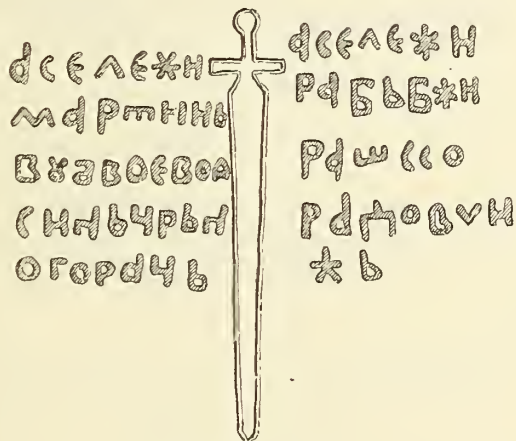 асележи
мартинь
вꙋавоевод
синьчрьн
огорачь
асележи
рабьбжи
рашссо
радовѵи
жь